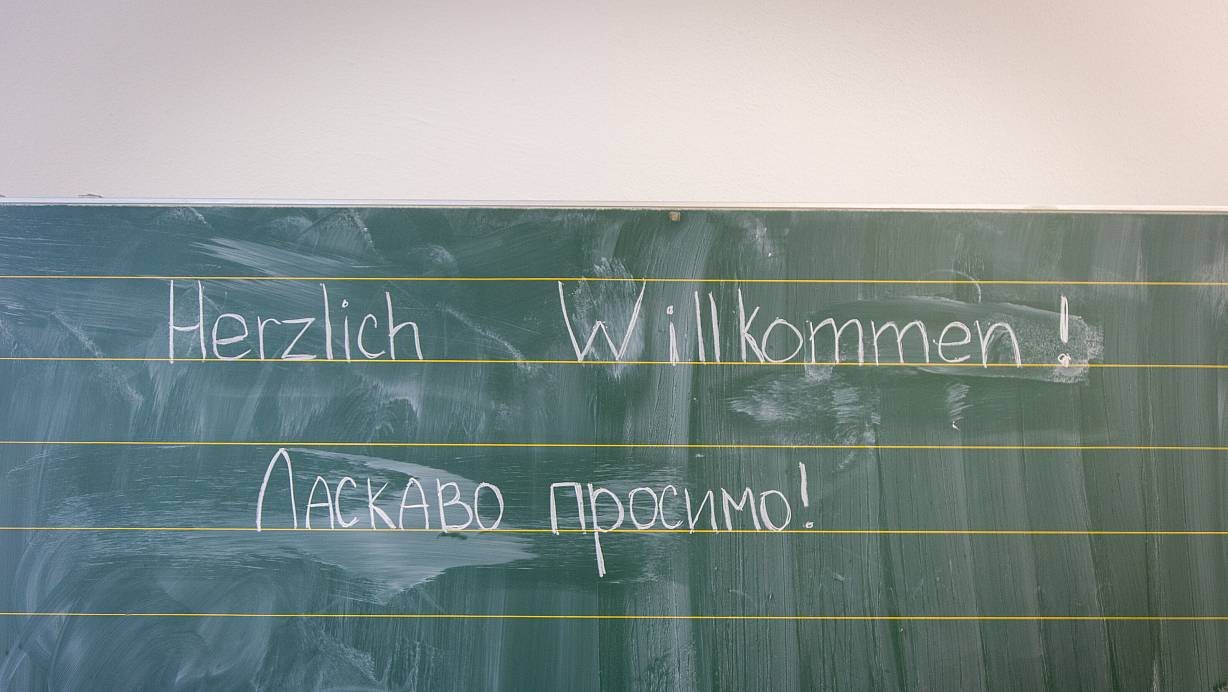 Herzlich Willkommen!
Ласкаво просимо!